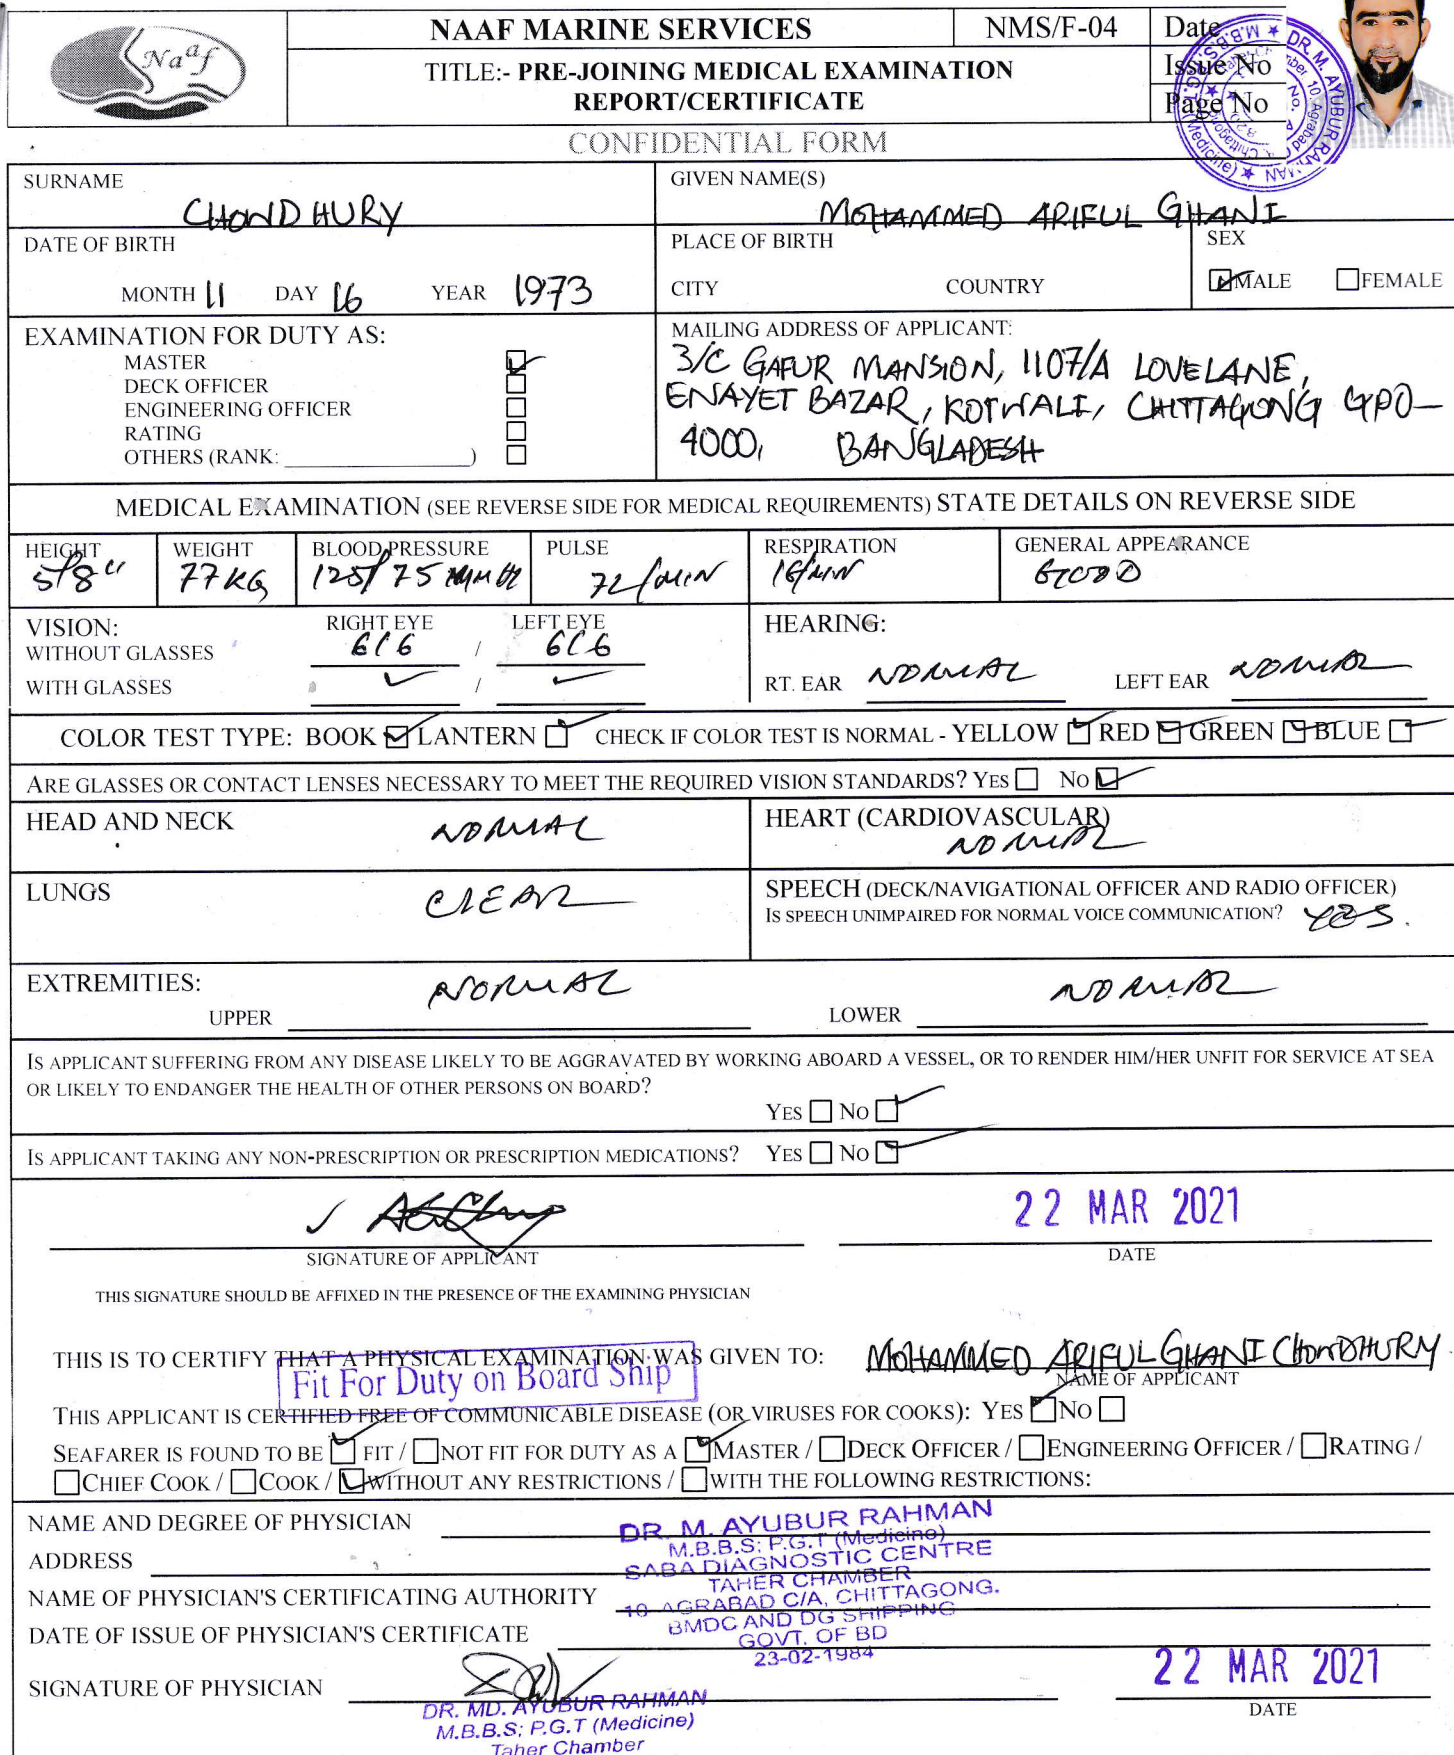 Naaf
NAAF MARINE SERVICES
NMS/F-04
Date
TITLE:- PRE-JOINING MEDICAL EXAMINATION
REPORT/CERTIFICATE
Issue No
Page No
CONFIDENTIAL FORM
SURNAME
CHOWDHURY
GIVEN NAME(S)
MOHAMMED ARIFUL GHANI
DATE OF BIRTH
MONTH 11 DAY 16 YEAR 1973
PLACE OF BIRTH
CITY COUNTRY
SEX
MALE FEMALE
EXAMINATION FOR DUTY AS:
MASTER
DECK OFFICER
ENGINEERING OFFICER
RATING
OTHERS (RANK: )
MAILING ADDRESS OF APPLICANT:
3/C GAFUR MANSION, 1107/A LOVELANE,
ENAYET BAZAR, KOTWALI, CHITTAGONG GPO-
4000, BANGLADESH
MEDICAL EXAMINATION (SEE REVERSE SIDE FOR MEDICAL REQUIREMENTS) STATE DETAILS ON REVERSE SIDE
HEIGHT 5'8"
WEIGHT 77 KG
BLOOD PRESSURE 125/75 MMHG
PULSE 72/MIN
RESPIRATION 16/MIN
GENERAL APPEARANCE GOOD
VISION: RIGHT EYE LEFT EYE
WITHOUT GLASSES 6/6 / 6/6
WITH GLASSES /
HEARING:
RT. EAR NORMAL LEFT EAR NORMAL
COLOR TEST TYPE: BOOK LANTERN CHECK IF COLOR TEST IS NORMAL - YELLOW RED GREEN BLUE
ARE GLASSES OR CONTACT LENSES NECESSARY TO MEET THE REQUIRED VISION STANDARDS? YES NO
HEAD AND NECK NORMAL
HEART (CARDIOVASCULAR)
NORMAL
LUNGS CLEAR
SPEECH (DECK/NAVIGATIONAL OFFICER AND RADIO OFFICER)
IS SPEECH UNIMPAIRED FOR NORMAL VOICE COMMUNICATION? YES.
EXTREMITIES:
UPPER NORMAL LOWER NORMAL
IS APPLICANT SUFFERING FROM ANY DISEASE LIKELY TO BE AGGRAVATED BY WORKING ABOARD A VESSEL, OR TO RENDER HIM/HER UNFIT FOR SERVICE AT SEA
OR LIKELY TO ENDANGER THE HEALTH OF OTHER PERSONS ON BOARD?
YES NO
IS APPLICANT TAKING ANY NON-PRESCRIPTION OR PRESCRIPTION MEDICATIONS? YES NO
22 MAR 2021
SIGNATURE OF APPLICANT DATE
THIS SIGNATURE SHOULD BE AFFIXED IN THE PRESENCE OF THE EXAMINING PHYSICIAN
THIS IS TO CERTIFY THAT A PHYSICAL EXAMINATION WAS GIVEN TO: MOHAMMED ARIFUL GHANI CHOWDHURY
Fit For Duty on Board Ship
NAME OF APPLICANT
THIS APPLICANT IS CERTIFIED FREE OF COMMUNICABLE DISEASE (OR VIRUSES FOR COOKS): YES NO
SEAFARER IS FOUND TO BE FIT / NOT FIT FOR DUTY AS A MASTER / DECK OFFICER / ENGINEERING OFFICER / RATING /
CHIEF COOK / COOK / WITHOUT ANY RESTRICTIONS / WITH THE FOLLOWING RESTRICTIONS:
NAME AND DEGREE OF PHYSICIAN
ADDRESS
NAME OF PHYSICIAN'S CERTIFICATING AUTHORITY
DATE OF ISSUE OF PHYSICIAN'S CERTIFICATE
DR. M. AYUBUR RAHMAN
M.B.B.S; P.G.T (Medicine)
SABA DIAGNOSTIC CENTRE
TAHER CHAMBER
10 AGRABAD C/A, CHITTAGONG.
BMDC AND DG SHIPPING
GOVT. OF BD
23-02-1984
22 MAR 2021
SIGNATURE OF PHYSICIAN
DATE
DR. MD. AYUBUR RAHMAN
M.B.B.S; P.G.T (Medicine)
Taher Chamber